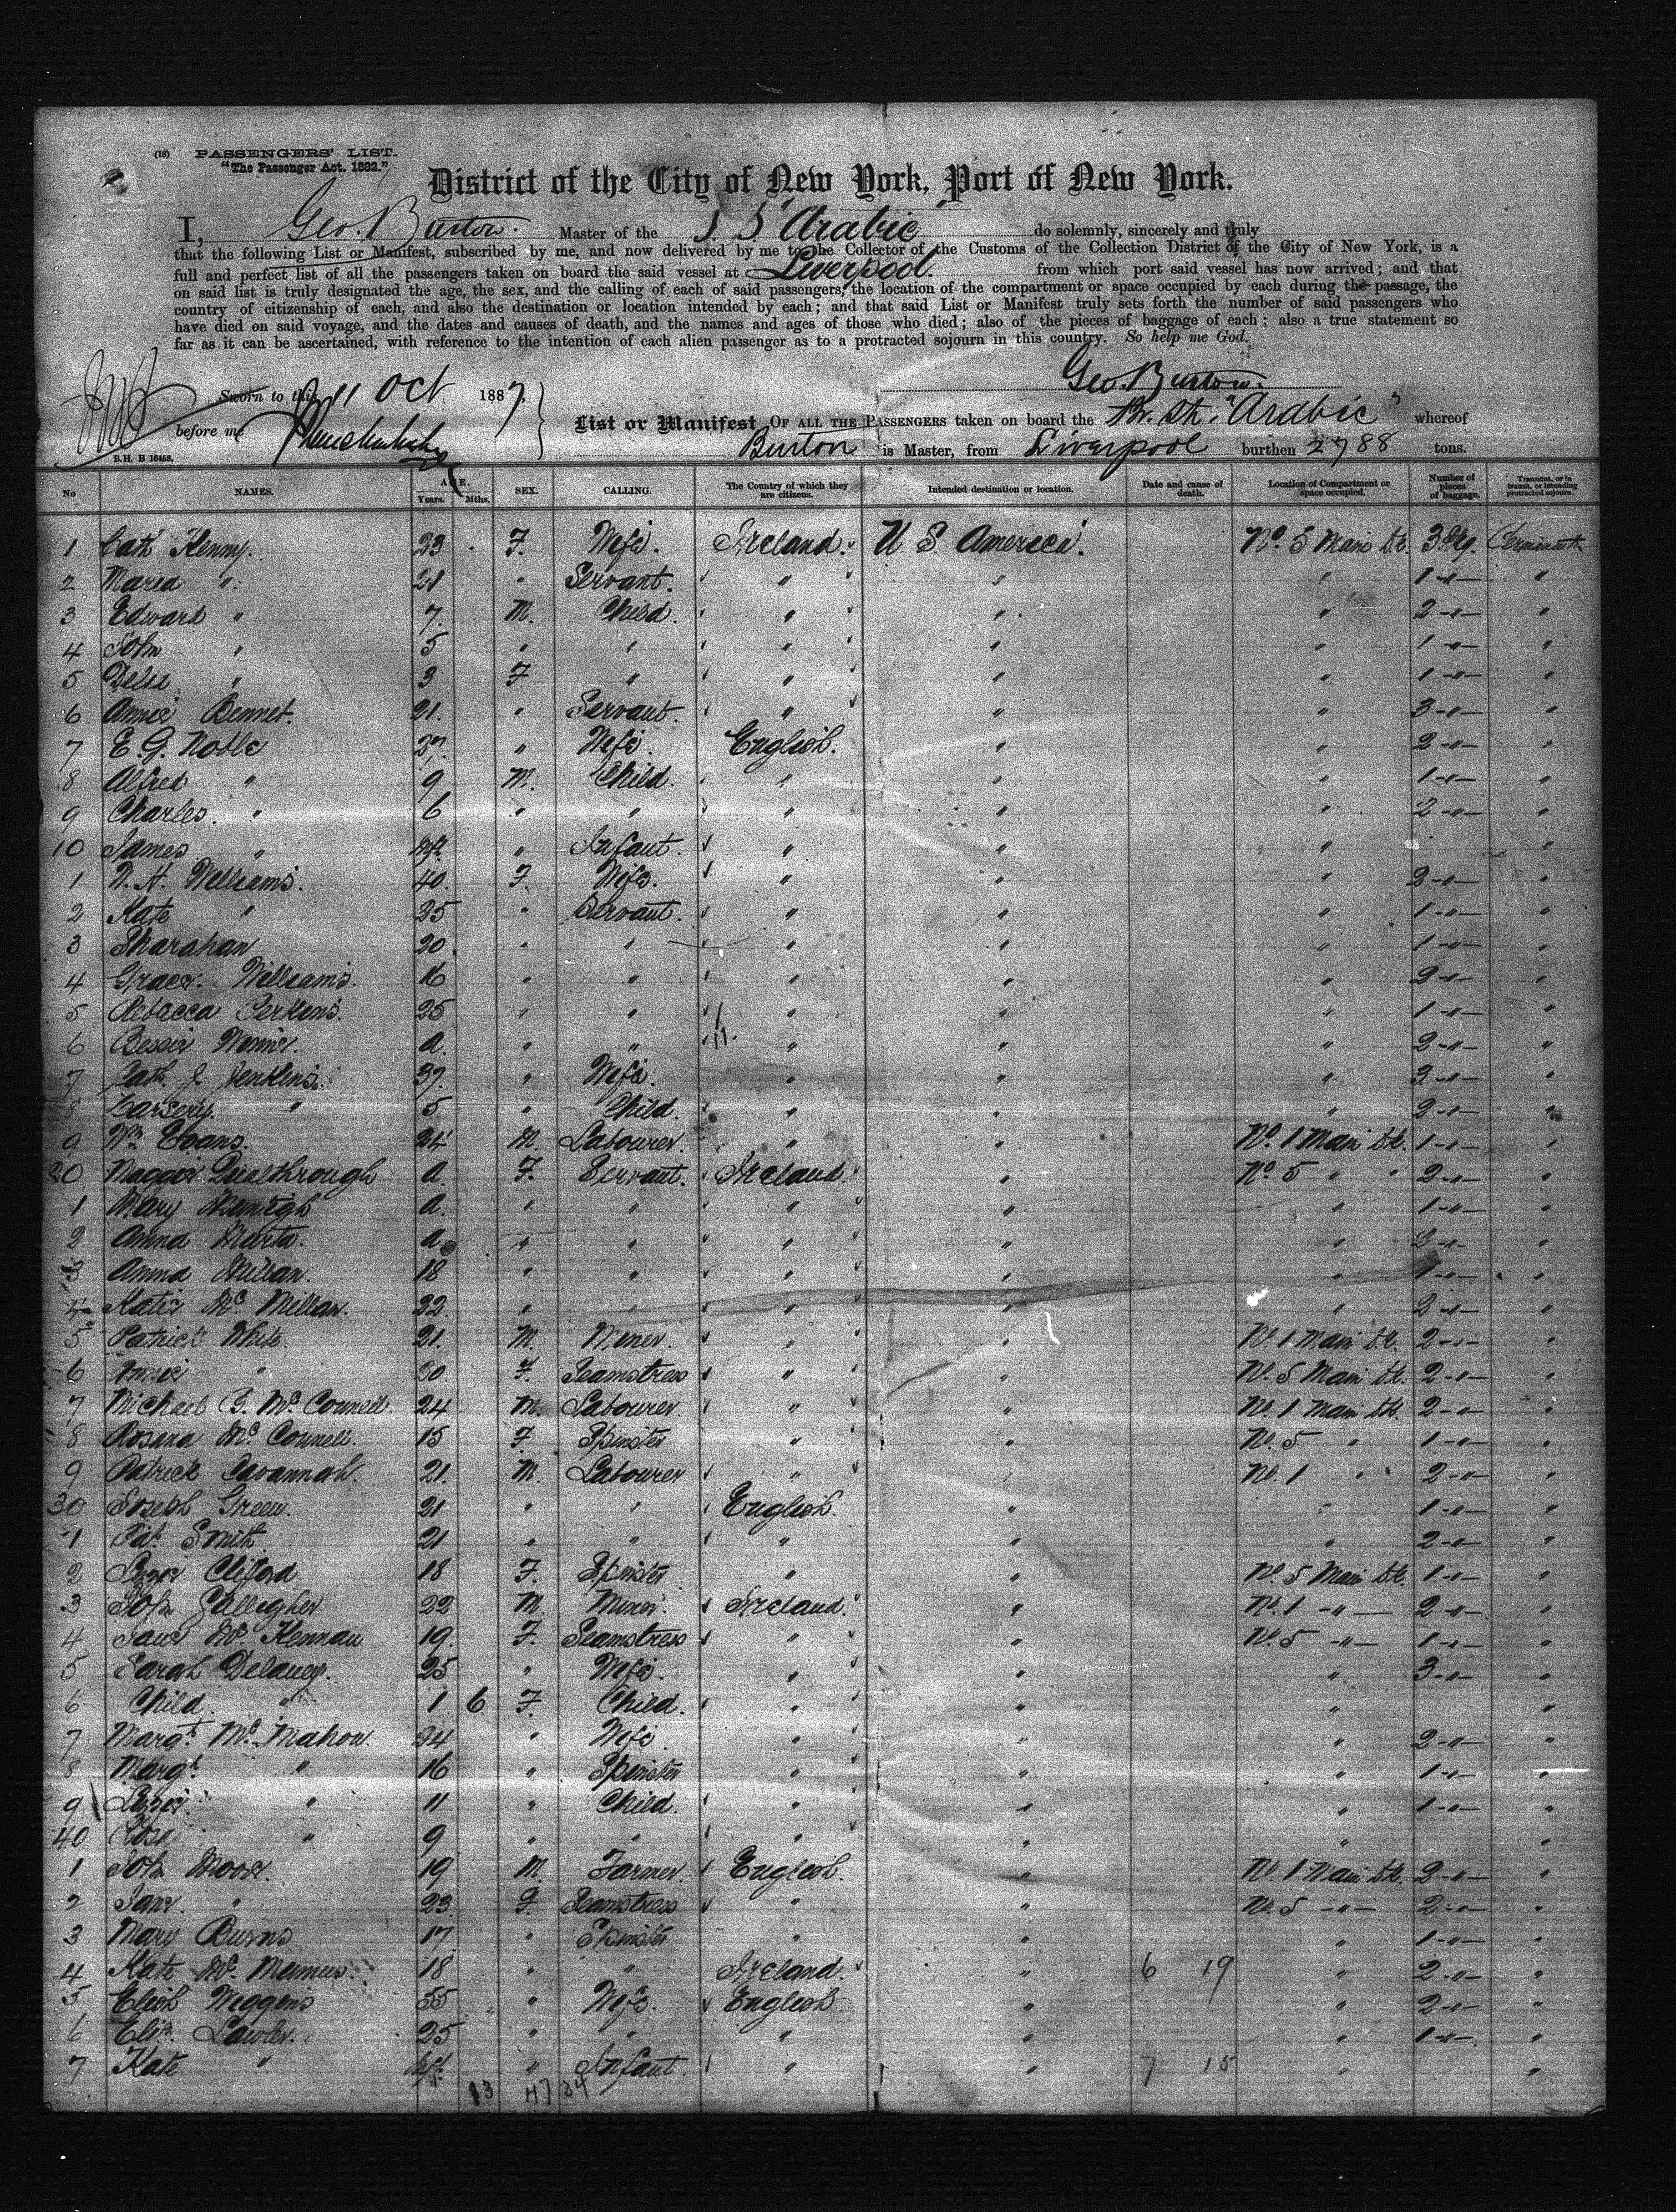 (18) PASSENGERS' LIST.
"The Passenger Act. 1882."
District of the City of New York, Port of New York.
I, Geo. Burton. Master of the S S "Arabic" do solemnly, sincerely and truly
that the following List or Manifest, subscribed by me, and now delivered by me to the Collector of the Customs of the Collection District of the City of New York, is a
full and perfect list of all the passengers taken on board the said vessel at Liverpool. from which port said vessel has now arrived; and that
on said list is truly designated the age, the sex, and the calling of each of said passengers, the location of the compartment or space occupied by each during the passage, the
country of citizenship of each, and also the destination or location intended by each; and that said List or Manifest truly sets forth the number of said passengers who
have died on said voyage, and the dates and causes of death, and the names and ages of those who died; also of the pieces of baggage of each; also a true statement so
far as it can be ascertained, with reference to the intention of each alien passenger as to a protracted sojourn in this country. So help me God.
Geo. Burton.
Sworn to this 11 Oct 1887
before me
List or Manifest OF ALL THE PASSENGERS taken on board the Br. St. "Arabic" whereof
Burton is Master, from Liverpool burthen 2788 tons.
B.H. B 16458.
No NAMES. AGE. Years. Mths. SEX. CALLING. The Country of which they are citizens. Intended destination or location. Date and cause of death. Location of Compartment or space occupied. Number of pieces of baggage. Transient, or in transit, or intending protracted sojourn.
1 Cath Kenny. 23 F. Wife. Ireland. U S America. No. 5 Main Dk. 3 Pkg.
2 Maria " 21 " Servant. " " " 1 " "
3 Edward " 7. M. Child. " " " 2 " "
4 John " 5 " " " " " 1 " "
5 " 3 F " " " " 1 " "
6 Annie Bennet. 21. " Servant. " " " 3 " "
7 E. G. Noble 37. " Wife. English. " " 2 " "
8 Alfred " 9 M. Child. " " " 1 " "
9 Charles. " 6 " " " " " 2 " "
10 James " Inf. " Infant. " " " "
1 W. H. Williams. 40. F. Wife. " " " 2 " "
2 Kate " 25 " Servant. " " " 1 " "
3 20. " " " " " 1 " "
4 Grace. Williams. 16 " " " " " 2 " "
5 Rebecca Perkins. 25 " " " " " 1 " "
6 Bessie a. " " " " " 2 " "
7 Cath J Jenkins. 39. " Wife. " " " 3 " "
8 " 5 " Child. " " " 2 " "
9 Wm. Evans. 24 M. Labourer. " " No. 1 Main Dk. 1 " "
20 Maggie Qualthrough a. F. Servant. Ireland. " No. 5 " " 2 " "
1 Mary a. " " " " " 1 " "
2 Anna a. " " " " " 2 " "
3 Anna 18 " " " " " 1 " "
4 Katie Mc. Millan. 22. " " " " " 2 " "
5 Patrick White. 21. M. Miner. " " No. 1 Main Dk. 2 " "
6 Annie " 20 F. Seamstress " " No. 5 Main Dk. 2 " "
7 Michael Mc. Connell. 24 M. Labourer. " " No. 1 Main Dk. 2 " "
8 Rosina Mc. Connell. 15 F. Spinster " " No. 5 " 1 " "
9 Patrick Cavannah. 21. M. Labourer " " No. 1 " " 2 " "
30 Joseph Green. 21 " " English. " " 1 " "
1 Pat. Smith. 21 " " " " " 2 " "
2 Lizzie Cliford 18 F. Spinster " " No. 5 Main Dk. 1 " "
3 John Gallegher 22 M. Miner. Ireland. " No. 1 " 2 " "
4 Jane Mc. Kennan 19. F. Seamstress " " No. 5 " 1 " "
5 Sarah Delaney. 25 " Wife. " " " 3 " "
6 Child. " 1 6 F. Child. " " " "
7 Margt. Mc. Mahon. 34 " Wife. " " " 2 " "
8 Margt. " 16 " Spinster " " " 1 " "
9 Lizzie. " 11 " Child. " " " 1 " "
40 Rose " 9 " " " " " "
1 John Moore. 19 M. Farmer. English. " No. 1 Main Dk. 2 " "
2 Jane. " 23. F. Seamstress " " No. 5 " 2 " "
3 Mary Burns 17 " Spinster " " " 1 " "
4 Kate Mc. 18 " " Ireland. " 6 19 " 2 " "
5 Eliza Weggens 55 " Wife. English " " 2 " "
6 Eliz. Lawler. 25 " " " " " 1 " "
7 Kate " Inf. " Infant. " " 7 15 " "
13 47 34